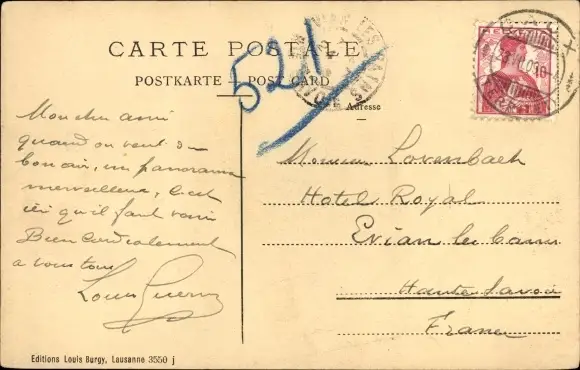 CARTE POSTALE
POSTKARTE — POST CARD
Adresse
521
EVIAN LES BAINS
HELVETIA
10
Mon cher ami
quand on veut du
bon air, un panorama
merveilleux, c'est
ici qu'il faut venir
Bien cordialement
a vous tous
Louis
Monsieur Lovenbach
Hotel Royal
Evian les Bains
Haute Savoie
France
Editions Louis Burgy, Lausanne 3550 j